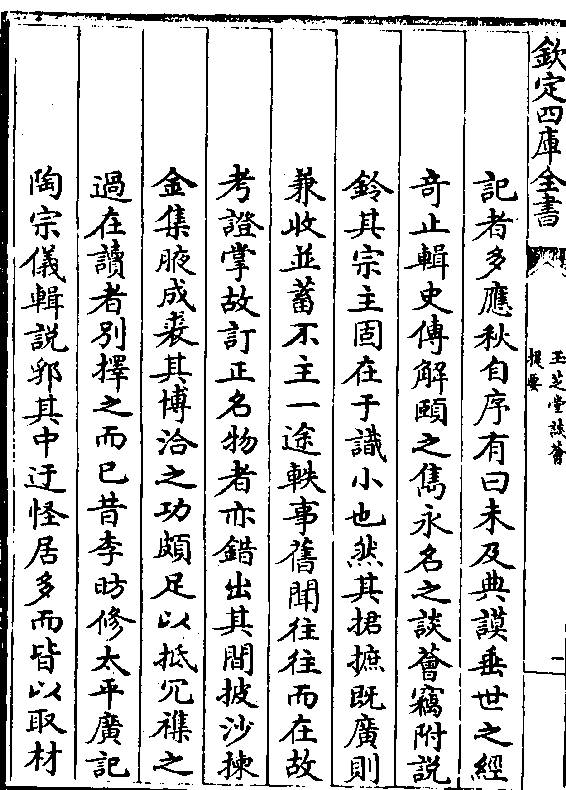 欽定四庫全書
玉芝堂談薈
提要
一
記者多應秋自序有曰未及典謨垂世之經
奇止輯史傳解頤之雋永名之談薈竊附説
鈴其宗主固在于識小也然其捃摭既廣則
兼收並蓄不主一途軼事舊聞往往而在故
考證掌故訂正名物者亦錯出其間披沙揀
金集腋成裘其博洽之功頗足以抵冗襍之
過在讀者別擇之而已昔李昉修太平廣記
陶宗儀輯説郛其中迂怪居多而皆以取材